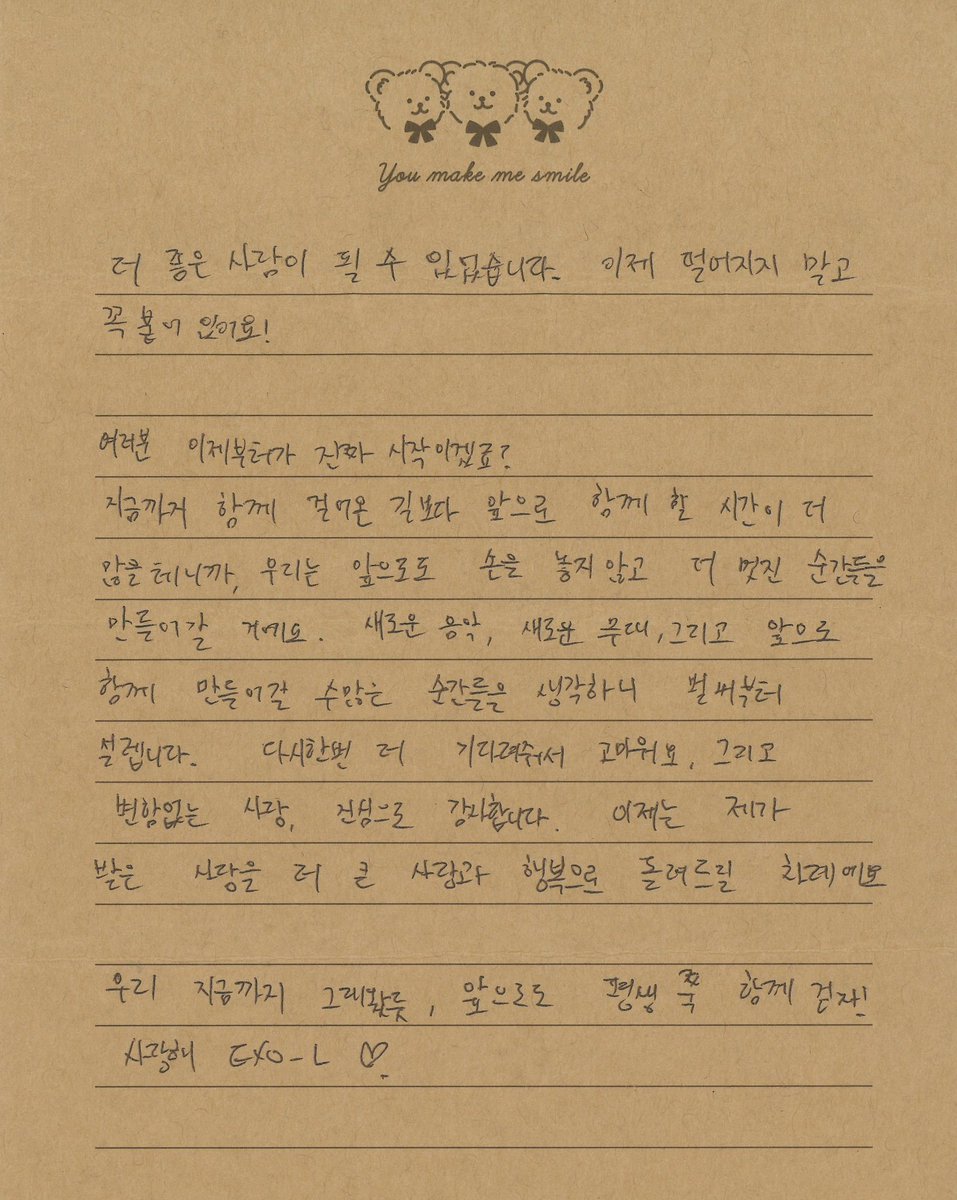 You make me smile
더 좋은 사람이 될 수 있었습니다. 이제 멀어지지 말고
꼭 붙어 있어요!
여러분 이제부터가 진짜 시작이겠죠?
지금까지 함께 걸어온 길보다 앞으로 함께 할 시간이 더
많을테니까, 우리는 앞으로도 손을 놓지않고 더 멋진 순간들을
만들어갈 거예요. 새로운 음악, 새로운 무대, 그리고 앞으로
함께 만들어갈 수많은 순간들을 생각하니 벌써부터
설렙니다. 다시한번 더 기다려줘서 고마워요, 그리고
변함없는 사랑, 진심으로 감사합니다. 이제는 제가
받은 사랑을 더 큰 사랑과 행복으로 돌려드릴 차례예요
우리 지금까지 그래왔듯, 앞으로도 평생 쭉 함께 걷자!
사랑해 EXO-L ♡.